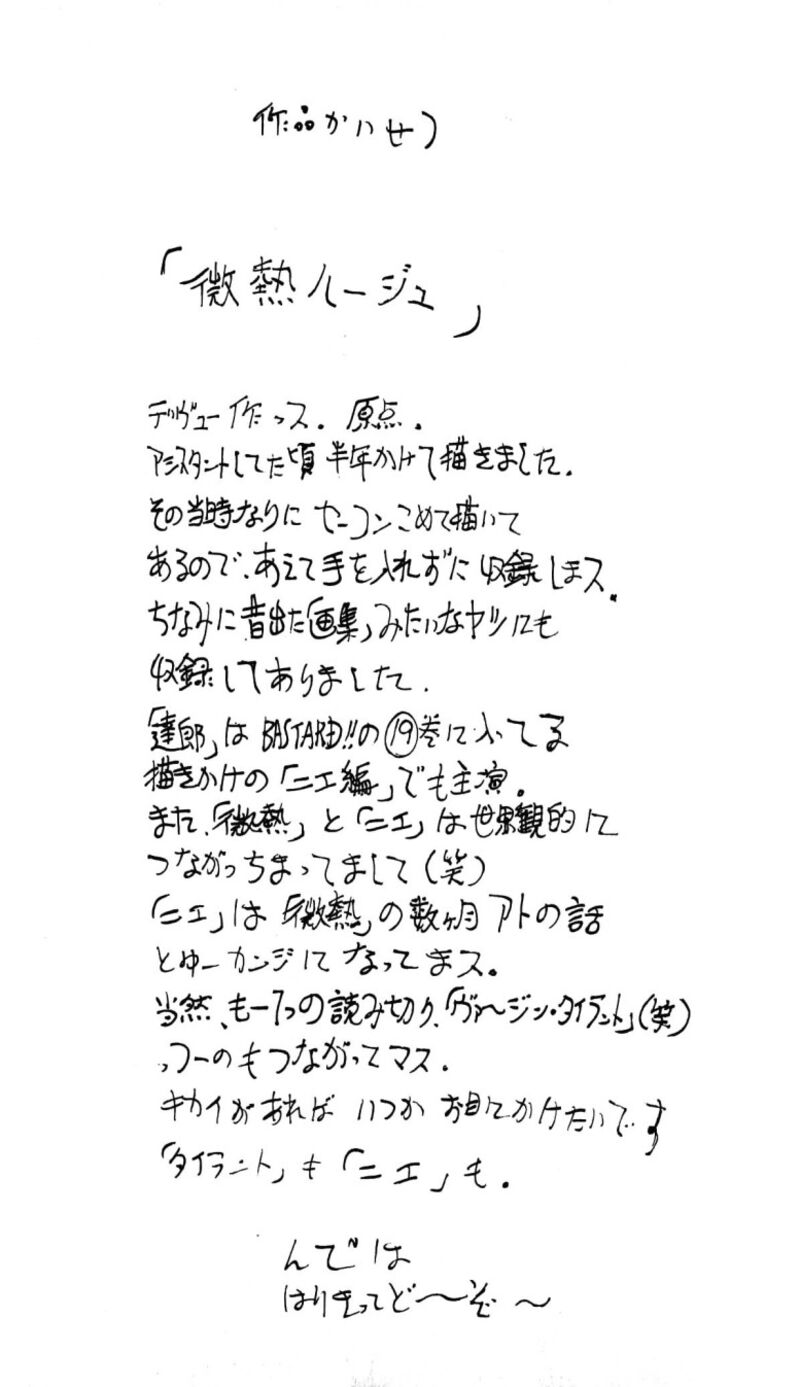 作品かいせつ
「微熱ルージュ」
デヴュー作っス. 原点.
アシスタントしてた頃 半年かけて描きました.
その当時なりに セーコンこめて描いて
あるので、あえて手を入れずに 収録しまス.
ちなみに昔出た「画集」みたいなヤツにも
収録してありましたて.
「達郎」は BASTARD!!の⑲巻に入ってる
描きかけの「ニエ編」でも主演.
また、「微熱」と「ニエ」は世界観的に
つながっちまってまして(笑)
「ニエ」は「微熱」の数ヶ月 アトの話
とゆー カンジに なってまス.
当然、もー1つの読み切り、「ヴァージン・タイラント」(笑)
っつーのもつながってマス.
キカイがあれば いつか お目にかけたいです
「タイラント」も「ニエ」も.
んでは
はりきってど〜ぞ〜